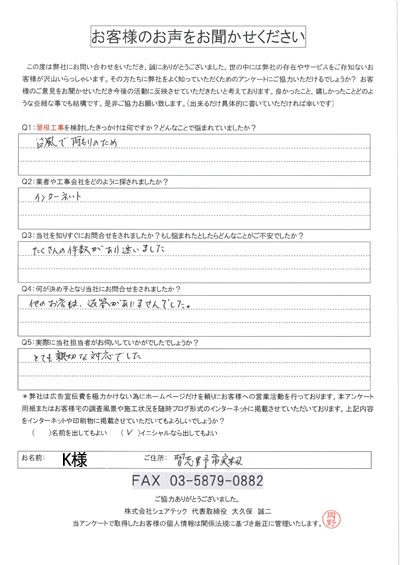 お客様のお声をお聞かせください
この度は弊社にお問い合わせをいただき、誠にありがとうございました。世の中には弊社の存在やサービスをご存知ないお
客様が沢山いらっしゃいます。その方たちに弊社をよく知っていただくためのアンケートにご協力いただけるでしょうか? お客
様のご意見をお聞かせいただき今後の活動に反映させていただきたいと考えております。良かったこと、嬉しかったことどのよ
うな些細な事でも結構です。是非ご協力お願い致します。(出来るだけ具体的に書いていただければ幸いです)
Q1:屋根工事を検討したきっかけは何ですか?どんなことで悩まれていましたか?
台風で雨もりのため
Q2:業者や工事会社をどのように探されましたか?
インターネット
Q3:当社を知りすぐにお問合せをされましたか?もし悩まれたとしたらどんなことがご不安でしたか?
たくさんの件数があり迷いました
Q4:何が決め手となり当社にお問合せをされましたか?
他のお店は、返答がありませんでした。
Q5:実際に当社担当者がお伺いしていかがでしたでしょうか?
とても親切な対応でした
*弊社は広告宣伝費を極力かけない為にホームページだけを頼りにお客様への営業活動を行っております。本アンケート
用紙またはお客様宅の調査風景や施工状況を随時ブログ形式のインターネットに掲載させていただいております。上記内容
をインターネットや印刷物に掲載させていただいてもよろしいでしょうか?
( )名前を出してもよい (✓)イニシャルなら出してもよい
お名前: K様 ご住所: 習志野市実籾
FAX 03-5879-0882
ご協力ありがとうございました。
株式会社シェアテック 代表取締役 大久保 誠二
当アンケートで取得したお客様の個人情報は関係法規に基づき厳正に管理いたします。
岡野